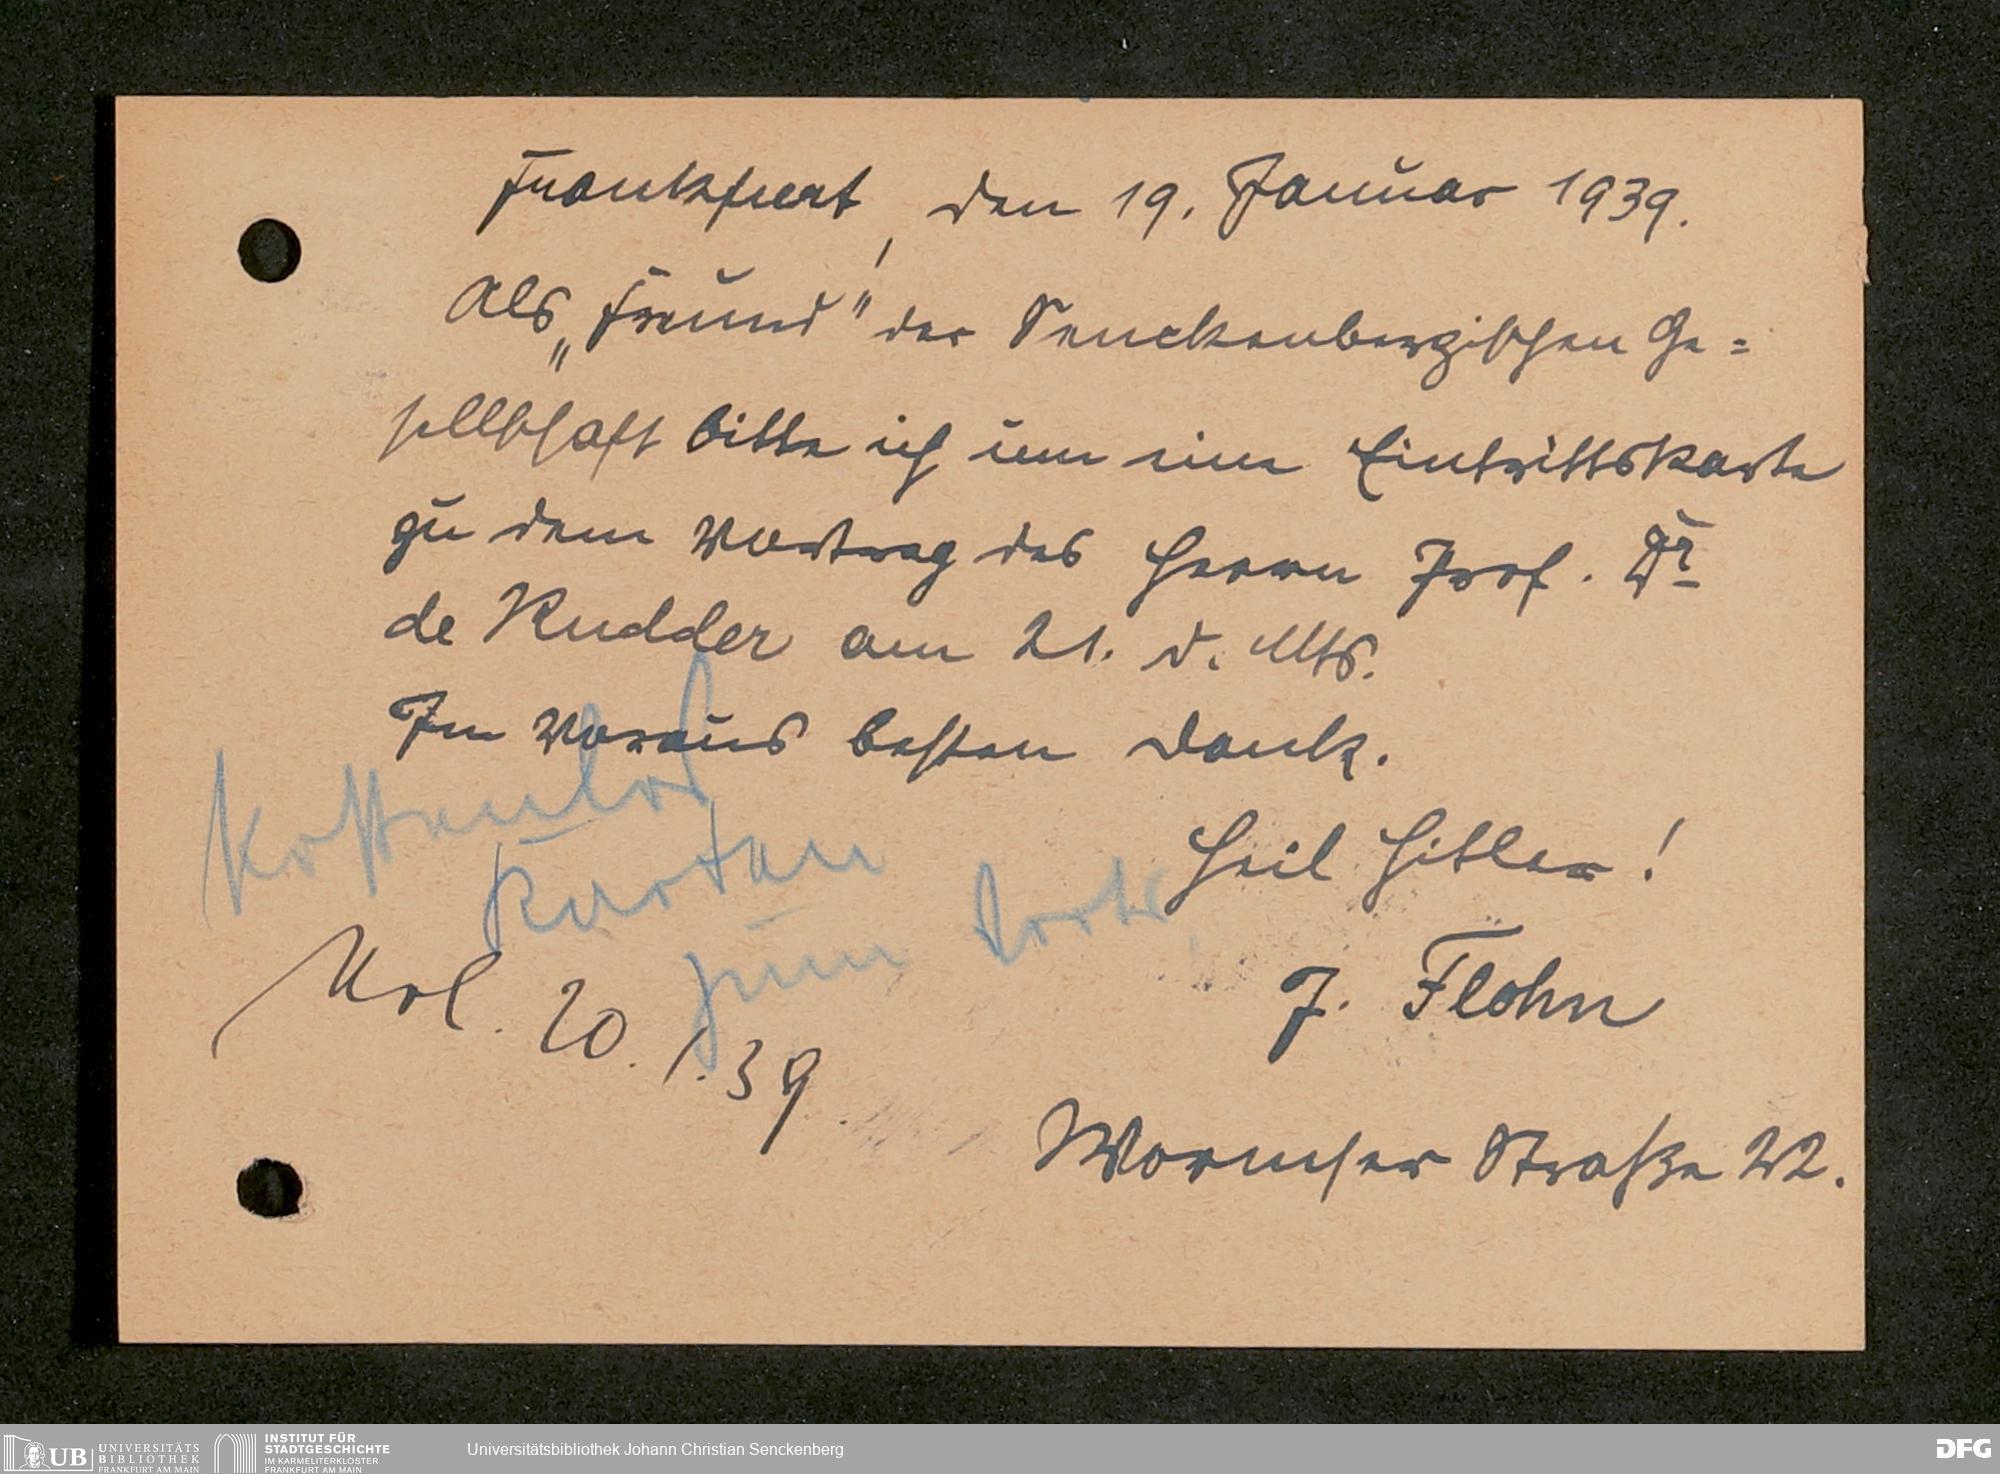 Frankfurt, den 19. Januar 1939.
Als „Freund" der Senckenbergischen Ge=
sellschaft bitte ich um eine Eintrittskarte
zu dem Vortrag des Herrn Prof. Dr
de Rudder am 21. d. Mts.
Im Voraus besten Dank.
Kostenlos
Karten
zum
Heil Hitler!
20.1.39
J. Flohn
Wormser Straße 22.
UB UNIVERSITÄTS
BIBLIOTHEK
FRANKFURT AM MAIN
INSTITUT FÜR
STADTGESCHICHTE
IM KARMELITERKLOSTER
FRANKFURT AM MAIN
Universitätsbibliothek Johann Christian Senckenberg
DFG